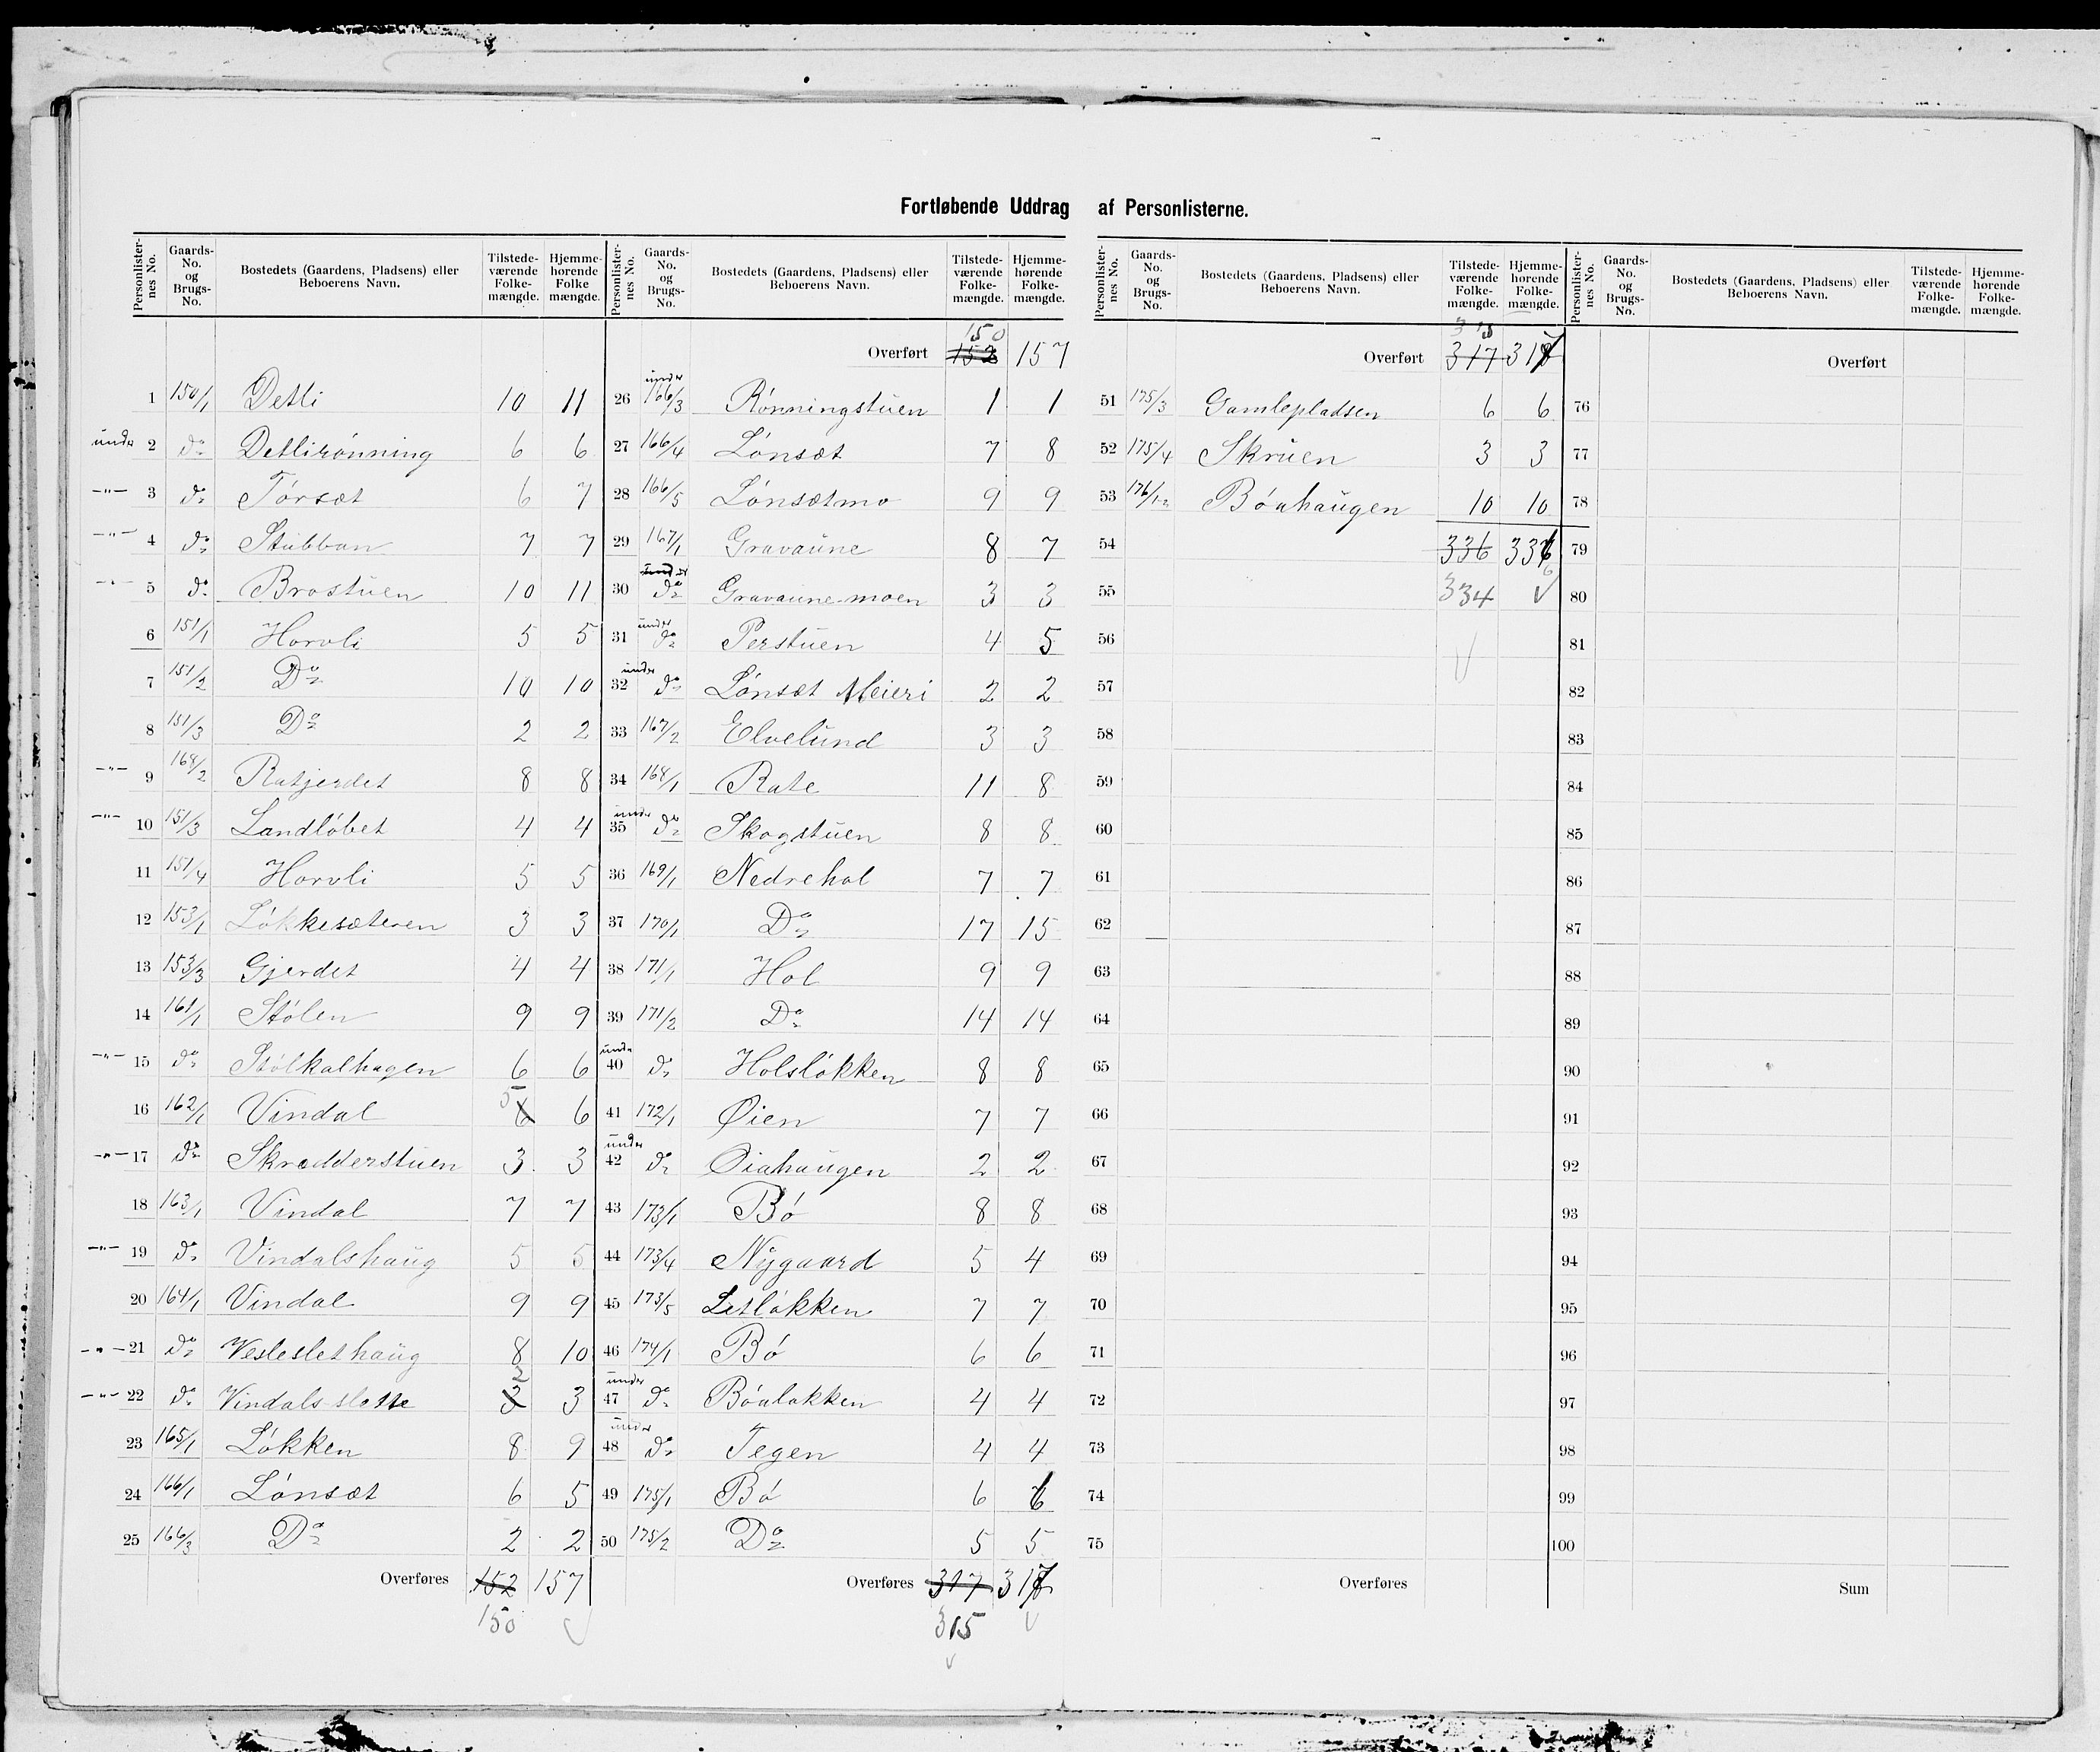 Fortløbende Uddrag af Personlisterne.
Personlister-nes No. | Gaards-No. og Brugs-No. | Bostedets (Gaardens, Pladsens) eller Beboerens Navn. | Tilstede-værende Folke-mængde. | Hjemme-hørende Folke mængde.
1 150/1 Detli 10 11
unde 2 do Detlirønning 6 6
-"- 3 do Tørsæt 6 7
-"- 4 do Stubban 7 7
-"- 5 do Brostuen 10 11
6 151/1 Horvli 5 5
7 151/2 Do 10 10
8 151/3 Do 2 2
-"- 9 168/2 Ratjerdet 8 8
-"- 10 151/3 Landløbet 4 4
11 151/4 Horvli 5 5
12 153/1 Løkkesæteren 3 3
13 153/3 Gjerdet 4 4
14 161/1 Stølen 9 9
-"- 15 do Stølkalhagen 6 6
16 162/1 Vindal 6 5 6
-"- 17 do Skrædderstuen 3 3
18 163/1 Vindal 7 7
-"- 19 do Vindalshaug 5 5
20 164/1 Vindal 9 9
-"- 21 do Vesleslethaug 8 10
-"- 22 do Vindalsslotte 3 2 3
23 165/1 Løkken 8 9
24 166/1 Lønsæt 6 5
25 166/3 Do 2 2
Overføres 152 157
150
Personlister-nes No. | Gaards-No. og Brugs-No. | Bostedets (Gaardens, Pladsens) eller Beboerens Navn. | Tilstede-værende Folke-mængde. | Hjemme-hørende Folke-mængde.
150
Overført 152 157
26 under 166/3 Rønningstuen 1 1
27 166/4 Lønsæt 7 8
28 166/5 Lønsætmo 9 9
29 167/1 Gravaune 8 7
30 under do Gravaune-moen 3 3
31 under do Perstuen 4 5
under 32 do Lønsæt Meieri 2 2
33 167/2 Elvelund 3 3
34 168/1 Rate 11 8
under 35 do Skogstuen 8 8
36 169/1 Nedrehol 7 7
37 170/1 Do 17 15
38 171/1 Hol 9 9
39 171/2 Do 14 14
unde 40 do Holsløkken 8 8
41 172/1 Øien 7 7
under 42 do Øiahaugen 2 2
43 173/1 Bø 8 8
44 173/4 Nygaard 5 4
45 173/5 Letløkken 7 7
46 174/1 Bø 6 6
under 47 do Bøaløkken 4 4
under 48 do Tegen 4 4
49 175/1 Bø 6 6
50 175/2 Do 5 5
Overføres 317 317
315
Personlister-nes No. | Gaards-No. og Brugs-No. | Bostedets (Gaardens, Pladsens) eller Beboerens Navn. | Tilstede-værende Folke-mængde. | Hjemme-hørende Folke-mængde.
315
Overført 317 317
51 175/3 Gamlepladsen 6 6
52 175/4 Skruen 3 3
53 176/1-2 Bøahaugen 10 10
54 336 336
55 334
56
57
58
59
60
61
62
63
64
65
66
67
68
69
70
71
72
73
74
75
Overføres
Personlister-nes No. | Gaards-No. og Brugs-No. | Bostedets (Gaardens, Pladsens) eller Beboerens Navn. | Tilstede-værende Folke-mængde. | Hjemme-hørende Folke-mængde.
Overført
76
77
78
79
80
81
82
83
84
85
86
87
88
89
90
91
92
93
94
95
96
97
98
99
100
Sum